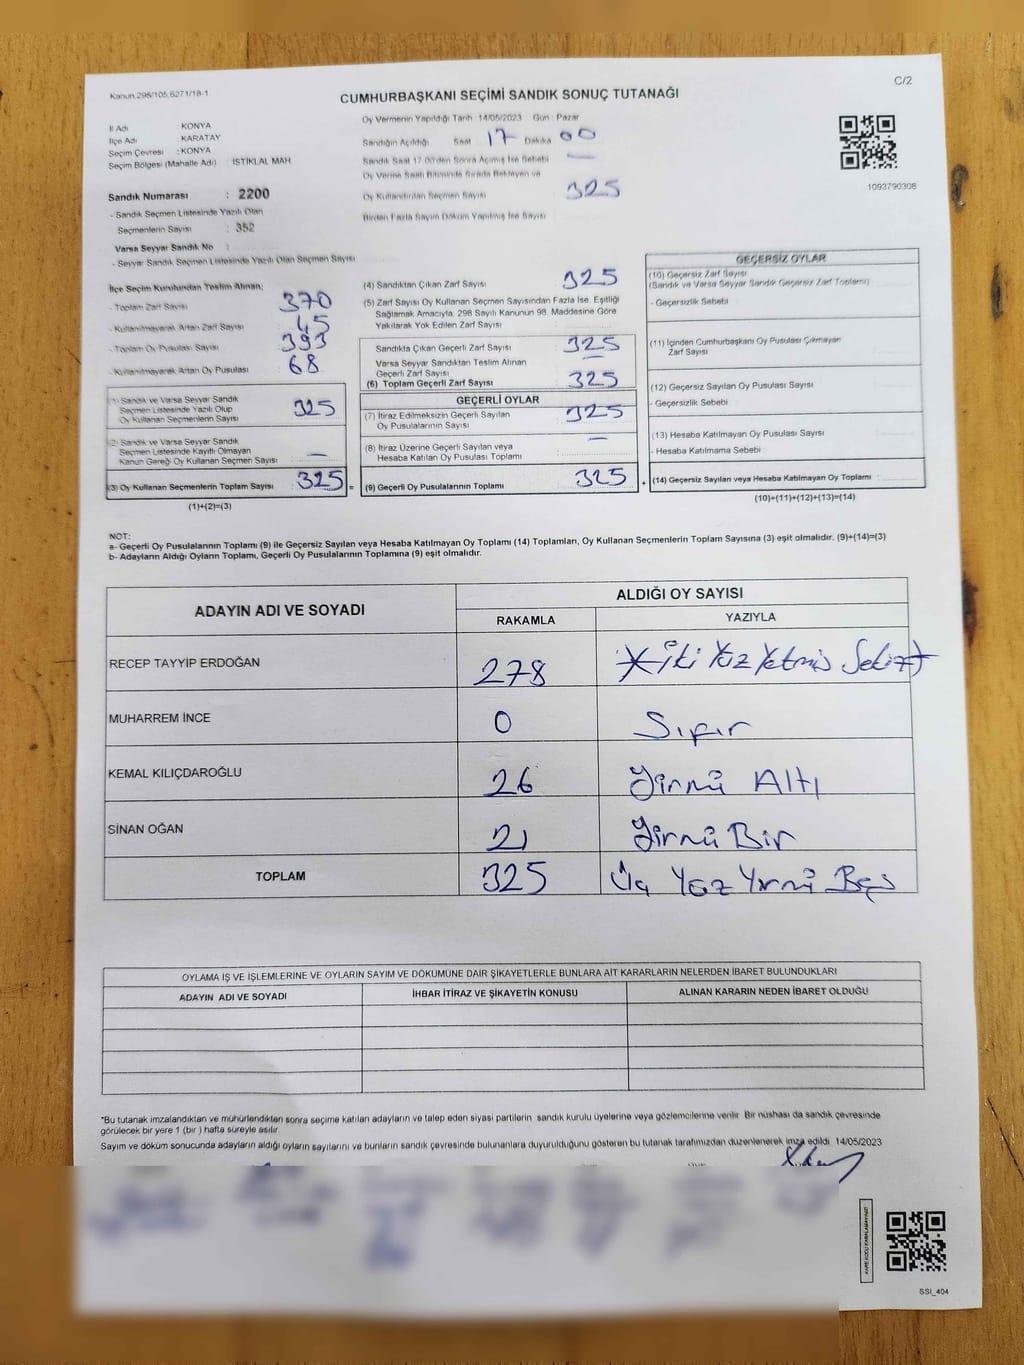 Kanun.298/105.6271/18-1
C/2
CUMHURBAŞKANI SEÇİMİ SANDIK SONUÇ TUTANAĞI
İl Adı : KONYA
İlçe Adı : KARATAY
Seçim Çevresi : KONYA
Seçim Bölgesi (Mahalle Adı) : İSTİKLAL MAH
Sandık Numarası : 2200
- Sandık Seçmen Listesinde Yazılı Olan
Seçmenlerin Sayısı : 352
Varsa Seyyar Sandık No :
- Seyyar Sandık Seçmen Listesinde Yazılı Olan Seçmen Sayısı
Oy Vermenin Yapıldığı Tarih 14/05/2023 Gün : Pazar
Sandığın Açıldığı Saat 17 Dakika 00
Sandık Saat 17.00'den Sonra Açılmış İse Sebebi —
Oy Verme Saati Bitiminde Sırada Bekleyen ve
Oy Kullandırılan Seçmen Sayısı 325
Birden Fazla Sayım Döküm Yapılmış İse Sayısı
1093790308
İlçe Seçim Kurulundan Teslim Alınan;
- Toplam Zarf Sayısı 370
- Kullanılmayarak Artan Zarf Sayısı 45
- Toplam Oy Pusulası Sayısı 393
- Kullanılmayarak Artan Oy Pusulası 68
(1) Sandık ve Varsa Seyyar Sandık
Seçmen Listesinde Yazılı Olup
Oy Kullanan Seçmenlerin Sayısı 325
(2) Sandık ve Varsa Seyyar Sandık
Seçmen Listesinde Kayıtlı Olmayan
Kanun Gereği Oy Kullanan Seçmen Sayısı —
(3) Oy Kullanan Seçmenlerin Toplam Sayısı 325 =
(1)+(2)=(3)
(4) Sandıktan Çıkan Zarf Sayısı 325
(5) Zarf Sayısı Oy Kullanan Seçmen Sayısından Fazla İse, Eşitliği
Sağlamak Amacıyla, 298 Sayılı Kanunun 98. Maddesine Göre
Yakılarak Yok Edilen Zarf Sayısı
Sandıkta Çıkan Geçerli Zarf Sayısı 325
Varsa Seyyar Sandıktan Teslim Alınan
Geçerli Zarf Sayısı —
(6) Toplam Geçerli Zarf Sayısı 325
GEÇERLİ OYLAR
(7) İtiraz Edilmeksizin Geçerli Sayılan
Oy Pusulalarının Sayısı 325
(8) İtiraz Üzerine Geçerli Sayılan veya
Hesaba Katılan Oy Pusulası Toplamı —
(9) Geçerli Oy Pusulalarının Toplamı 325 +
GEÇERSİZ OYLAR
(10) Geçersiz Zarf Sayısı
(Sandık ve Varsa Seyyar Sandık Geçersiz Zarf Toplamı)
- Geçersizlik Sebebi
(11) İçinden Cumhurbaşkanı Oy Pusulası Çıkmayan
Zarf Sayısı
(12) Geçersiz Sayılan Oy Pusulası Sayısı
- Geçersizlik Sebebi
(13) Hesaba Katılmayan Oy Pusulası Sayısı
- Hesaba Katılmama Sebebi
(14) Geçersiz Sayılan veya Hesaba Katılmayan Oy Toplamı
(10)+(11)+(12)+(13)=(14)
NOT:
a- Geçerli Oy Pusulalarının Toplamı (9) ile Geçersiz Sayılan veya Hesaba Katılmayan Oy Toplamı (14) Toplamları, Oy Kullanan Seçmenlerin Toplam Sayısına (3) eşit olmalıdır. (9)+(14)=(3)
b- Adayların Aldığı Oyların Toplamı, Geçerli Oy Pusulalarının Toplamına (9) eşit olmalıdır.
ADAYIN ADI VE SOYADI ALDIĞI OY SAYISI
RAKAMLA YAZIYLA
RECEP TAYYİP ERDOĞAN 278 İki Yüz Yetmiş Sekiz
MUHARREM İNCE 0 Sıfır
KEMAL KILIÇDAROĞLU 26 Yirmi Altı
SİNAN OĞAN 21 Yirmi Bir
TOPLAM 325 Üç Yüz Yirmi Beş
OYLAMA İŞ VE İŞLEMLERİNE VE OYLARIN SAYIM VE DÖKÜMÜNE DAİR ŞİKAYETLERLE BUNLARA AİT KARARLARIN NELERDEN İBARET BULUNDUKLARI
ADAYIN ADI VE SOYADI İHBAR İTİRAZ VE ŞİKAYETİN KONUSU ALINAN KARARIN NEDEN İBARET OLDUĞU
*Bu tutanak imzalandıktan ve mühürlendikten sonra seçime katılan adayların ve talep eden siyasi partilerin sandık kurulu üyelerine veya gözlemcilerine verilir. Bir nüshası da sandık çevresinde
görülecek bir yere 1 (bir) hafta süreyle asılır.
Sayım ve döküm sonucunda adayların aldığı oyların sayılarını ve bunların sandık çevresinde bulunanlara duyurulduğunu gösteren bu tutanak tarafımızdan düzenlenerek imza edildi. 14/05/2023
KAREKODU KARALAMAYINIZ!
SSI_404